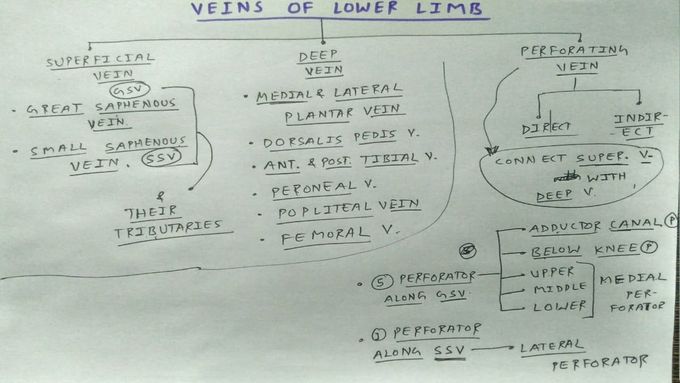 VEINS OF LOWER LIMB
SUPERFICIAL
VEIN
GSV
• GREAT SAPHENOUS
VEIN
• SMALL SAPHENOUS
VEIN. SSV
&
THEIR
TRIBUTARIES
DEEP
VEIN
• MEDIAL & LATERAL
PLANTAR VEIN
• DORSALIS PEDIS V.
• ANT. & POST. TIBIAL V.
• PERONEAL V.
• POPLITEAL VEIN
• FEMORAL V.
PERFORATING
VEIN
DIRECT
INDIR-
ECT
CONNECT SUPER. V-
WITH
DEEP V.
• 5 PERFORATOR
ALONG GSV.
• ADDUCTOR CANAL P
• BELOW KNEE P
• UPPER
• MIDDLE
• LOWER
MEDIAL
PER-
FORATOR
• 1 PERFORATOR
ALONG SSV
• LATERAL
PERFORATOR